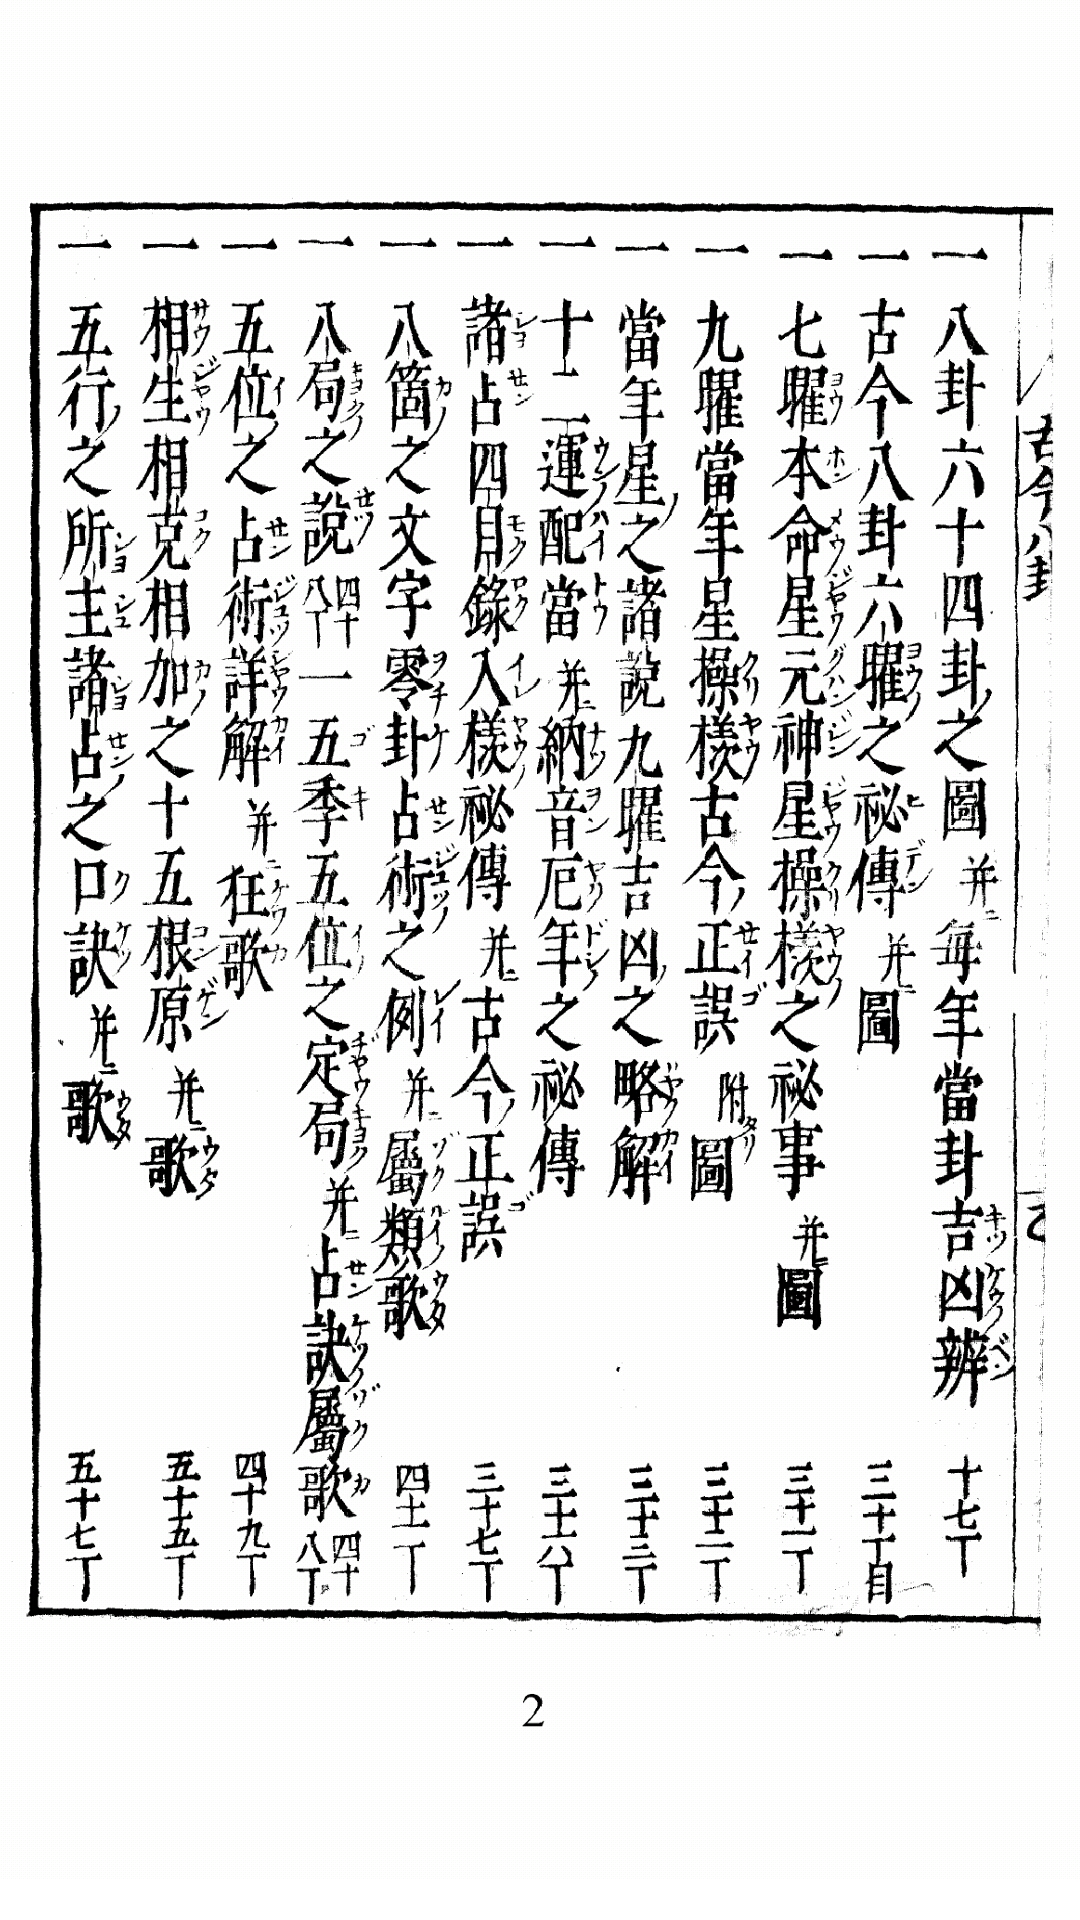 一 八卦六十四卦之圖 并ニ 毎年當卦吉凶辨 十七丁
一 古今八卦六曜之祕傳 并ニ 圖 三十丁目
一 七曜本命星元神星操樣之祕事 并ニ 圖 三十一丁
一 九曜當年星操樣古今正誤 附 圖 三十二丁
一 當年星之諸説九曜吉凶之略解 三十三丁
一 十二運配當 并ニ 納音厄年之祕傳 三十六丁
一 諸占四目錄入樣祕傳 并ニ 古今正誤 三十七丁
一 八箇之文字零卦占術之例 并ニ 屬類歌 四十一丁
一 八局之說 四十八丁 一 五季五位之定局 并ニ 占訣屬歌 四十八丁
一 五位之占術詳解 并ニ 狂歌 四十九丁
一 相生相克相加之十五根原 并ニ 歌 五十五丁
一 五行之所主諸占之口訣 并ニ 歌 五十七丁
2